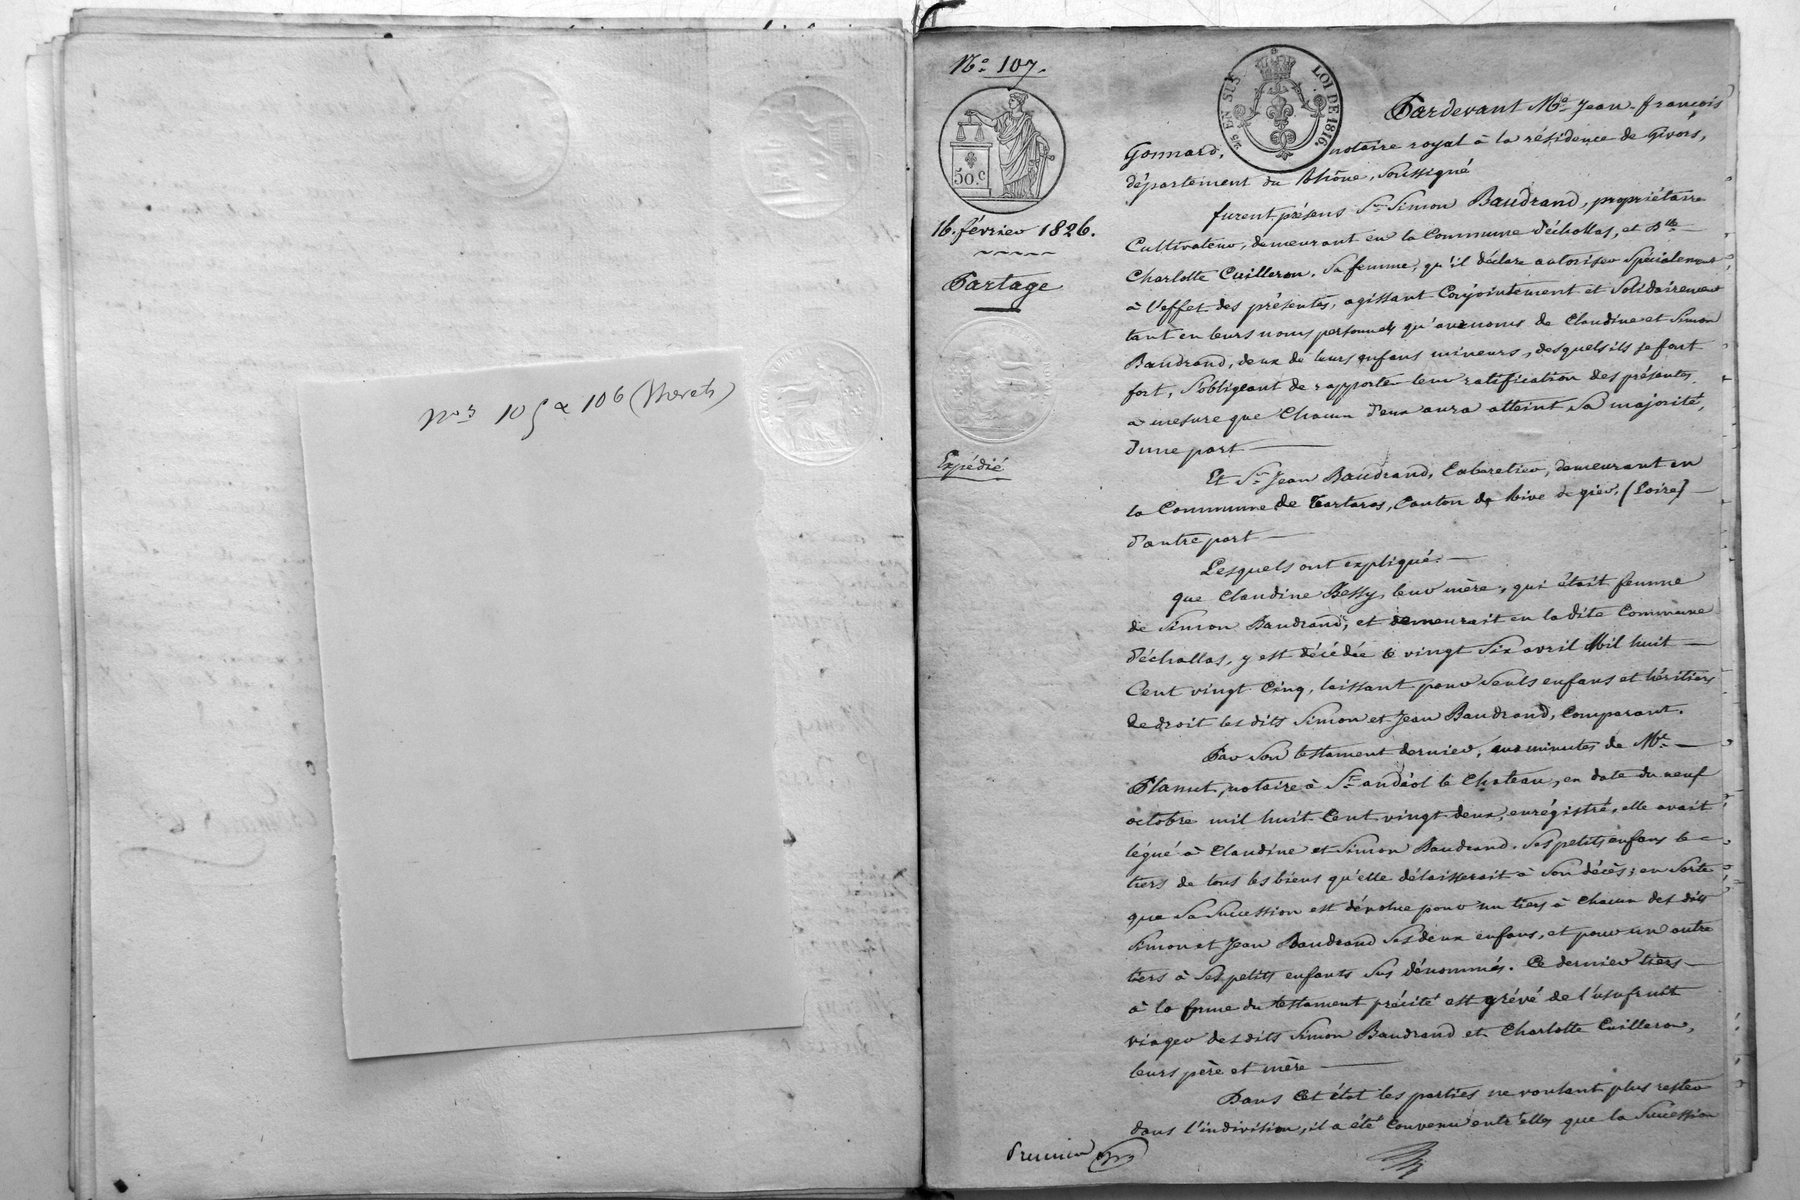 Nos 105 & 106 (Morets)
No. 107.
25 EN SUS LOI DE 1816.
50.c
16. février 1826.
Partage
Expédié
Pardevant Me. Jean-françois
Gonnard, notaire royal à la résidence de Givors,
département du Rhône, soussigné
furent présens Sr. Simon Baudrand, propriétaire
Cultivateur, demeurant en la Commune d'échallas, et Dlle
Charlotte Cuilleron, sa femme, qu'il déclare autoriser Spécialement
à l'effet des présentes, agissant Conjointement et Solidairement
tant en leurs noms personnels qu'aux noms de Claudine et Simon
Baudrand, deux de leurs enfans mineurs, desquels ils se font
fort, S'obligeant de rapporter leur ratification des présentes,
a mesure que Chacun d'eux aura atteint Sa majorité,
d'une part
Et Sr. Jean Baudrand, Cabaretier, demeurant en
la Commune de Tartaras, Canton de Rive de gier, (Loire)
d'autre part
Lesquels ont expliqué:
que Claudine Bessy, leur mère, qui était femme
de Simon Baudrand, et demeurait en la dite Commune
d'échallas, y est décédée le vingt Six avril Mil huit
Cent vingt Cinq, laissant pour Seuls enfans et héritiers
de droit les dits Simon et Jean Baudrand, Comparant.
Par Son testament dernier, aux minutes de Me.
Planut, notaire à St. andéol le Chateau, en date du neuf
octobre mil huit Cent vingt deux, enrégistré, elle avait
légué à Claudine et Simon Baudrand, Ses petits enfans le
tiers de tous les biens qu'elle délaisserait à Son décès; en Sorte
que Sa Succession est dévolue pour un tiers à Chacun des dits
Simon et Jean Baudrand Ses deux enfans, et pour un autre
tiers à Ses petits enfants Sus dénommés. Ce dernier tiers
à la forme du testament précité est grévé de l'usufruit
viager des dits Simon Baudrand et Charlotte Cuilleron,
leurs père et mère
Dans Cet état les parties ne voulant plus rester
dans l'indivision, il a été Convenu entr'elles que la Succession